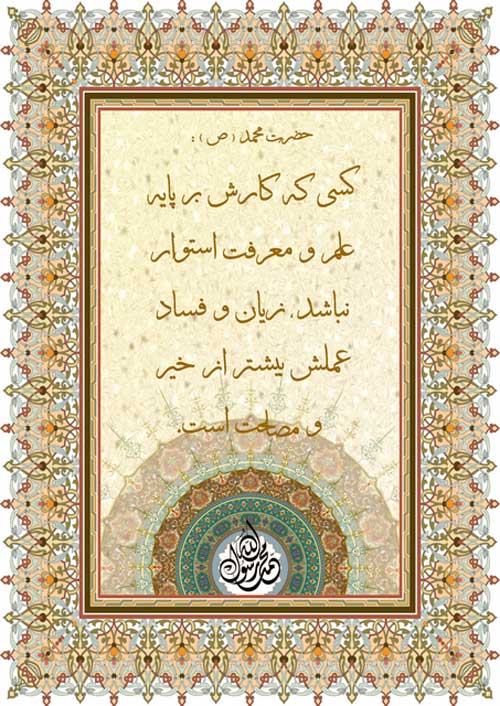 حضرت محمد (ص):
کسی که کارش بر پایه
علم و معرفت استوار
نباشد، زیان و فساد
عملش بیشتر از خیر
و مصلحت است.
محمد رسول الله